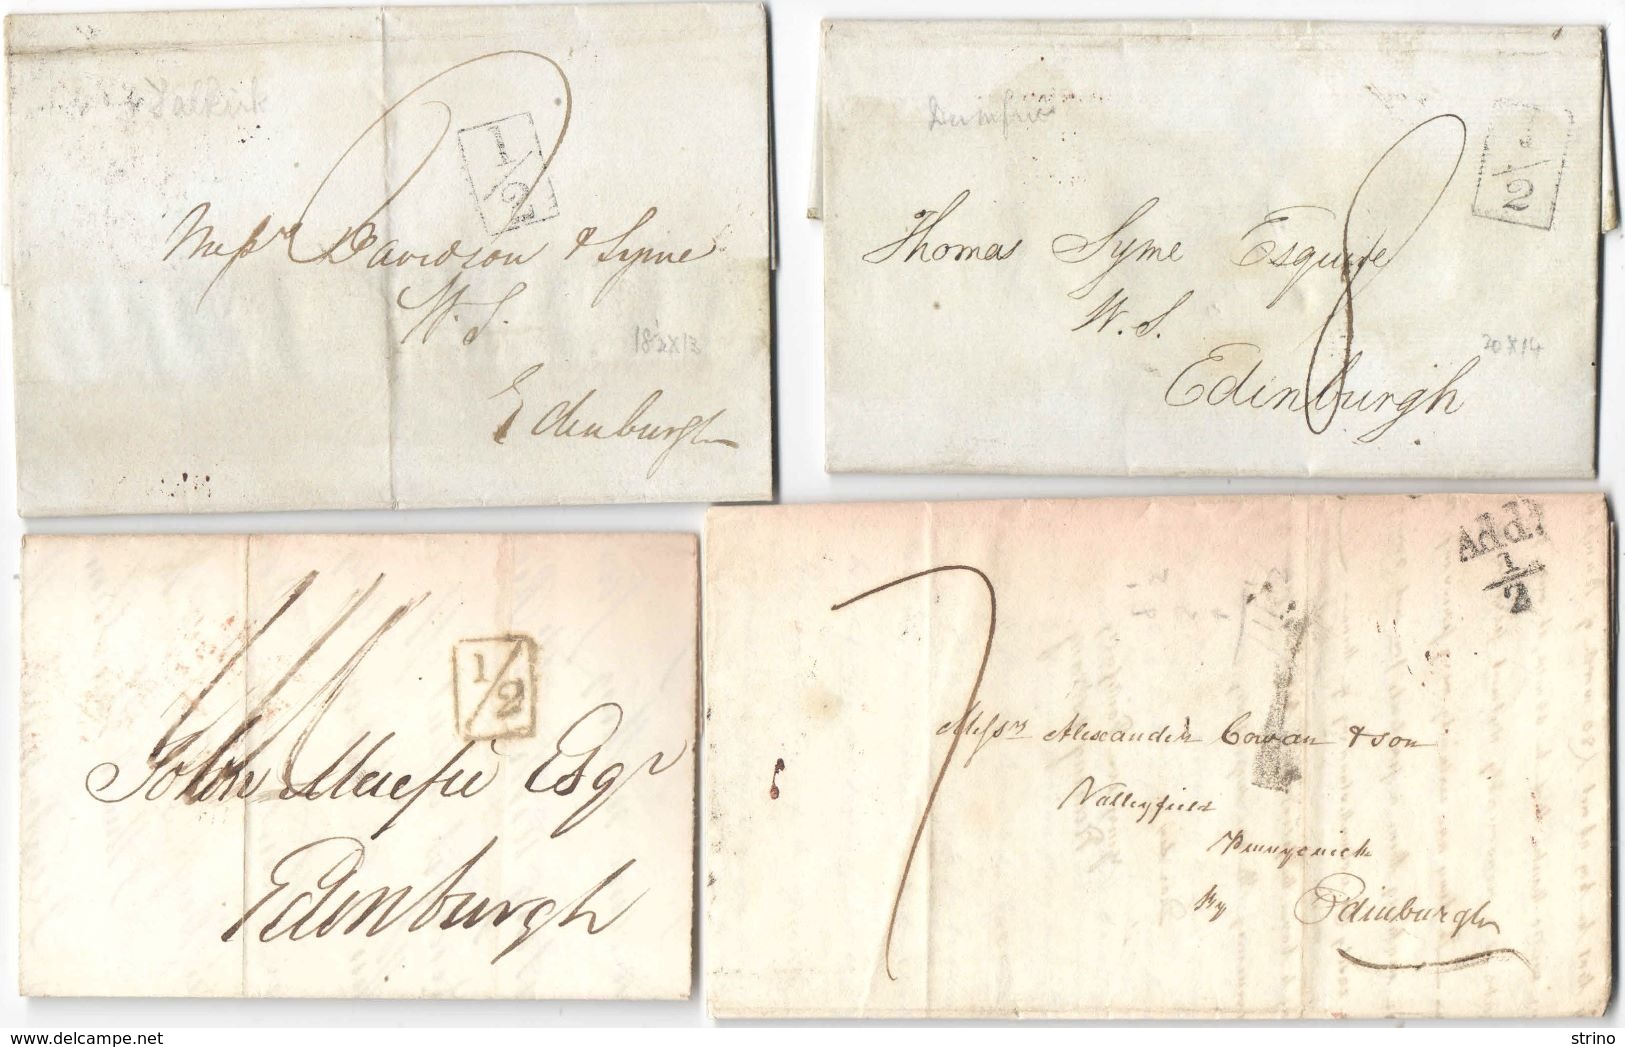 Falkirk
1/2
Messrs Davidson & Syme
W. S.
18 x 13
Edinburgh
Dumfries
1/2
8
Thomas Syme Esquire
W. S.
20 x 14
Edinburgh
1/2
John Macfie Esqr
Edinburgh
Addl
1/2
7
Messrs Alexander Cowan & Son
Valleyfield
Pennycuick
By Edinburgh
www.delcampe.net
strino